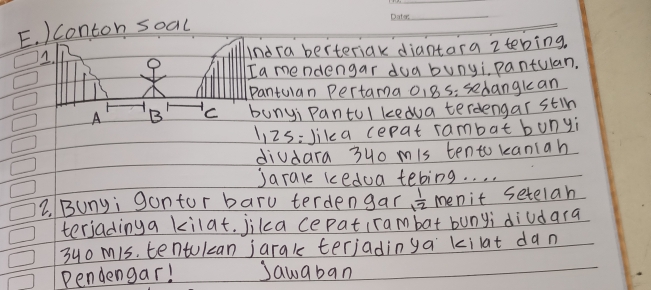 Date:
E.) Contoh soal
1. Indra berteriak diantara 2 tebing.
Ia mendengar dua bunyi pantulan.
Pantulan Pertama 0,8 s; sedangkan
bunyi Pantul kedua terdengar stlh
1,2 s. Jika cepat rambat bunyi
diudara 340 m/s tentukanlah
jarak kedua tebing....
A B C
2. Bunyi guntur baru terdengar 1/2 menit setelah
terjadinya kilat. jika cepat rambat bunyi diudara
340 m/s. tentukan jarak terjadinya kilat dan
Pendengar! Jawaban